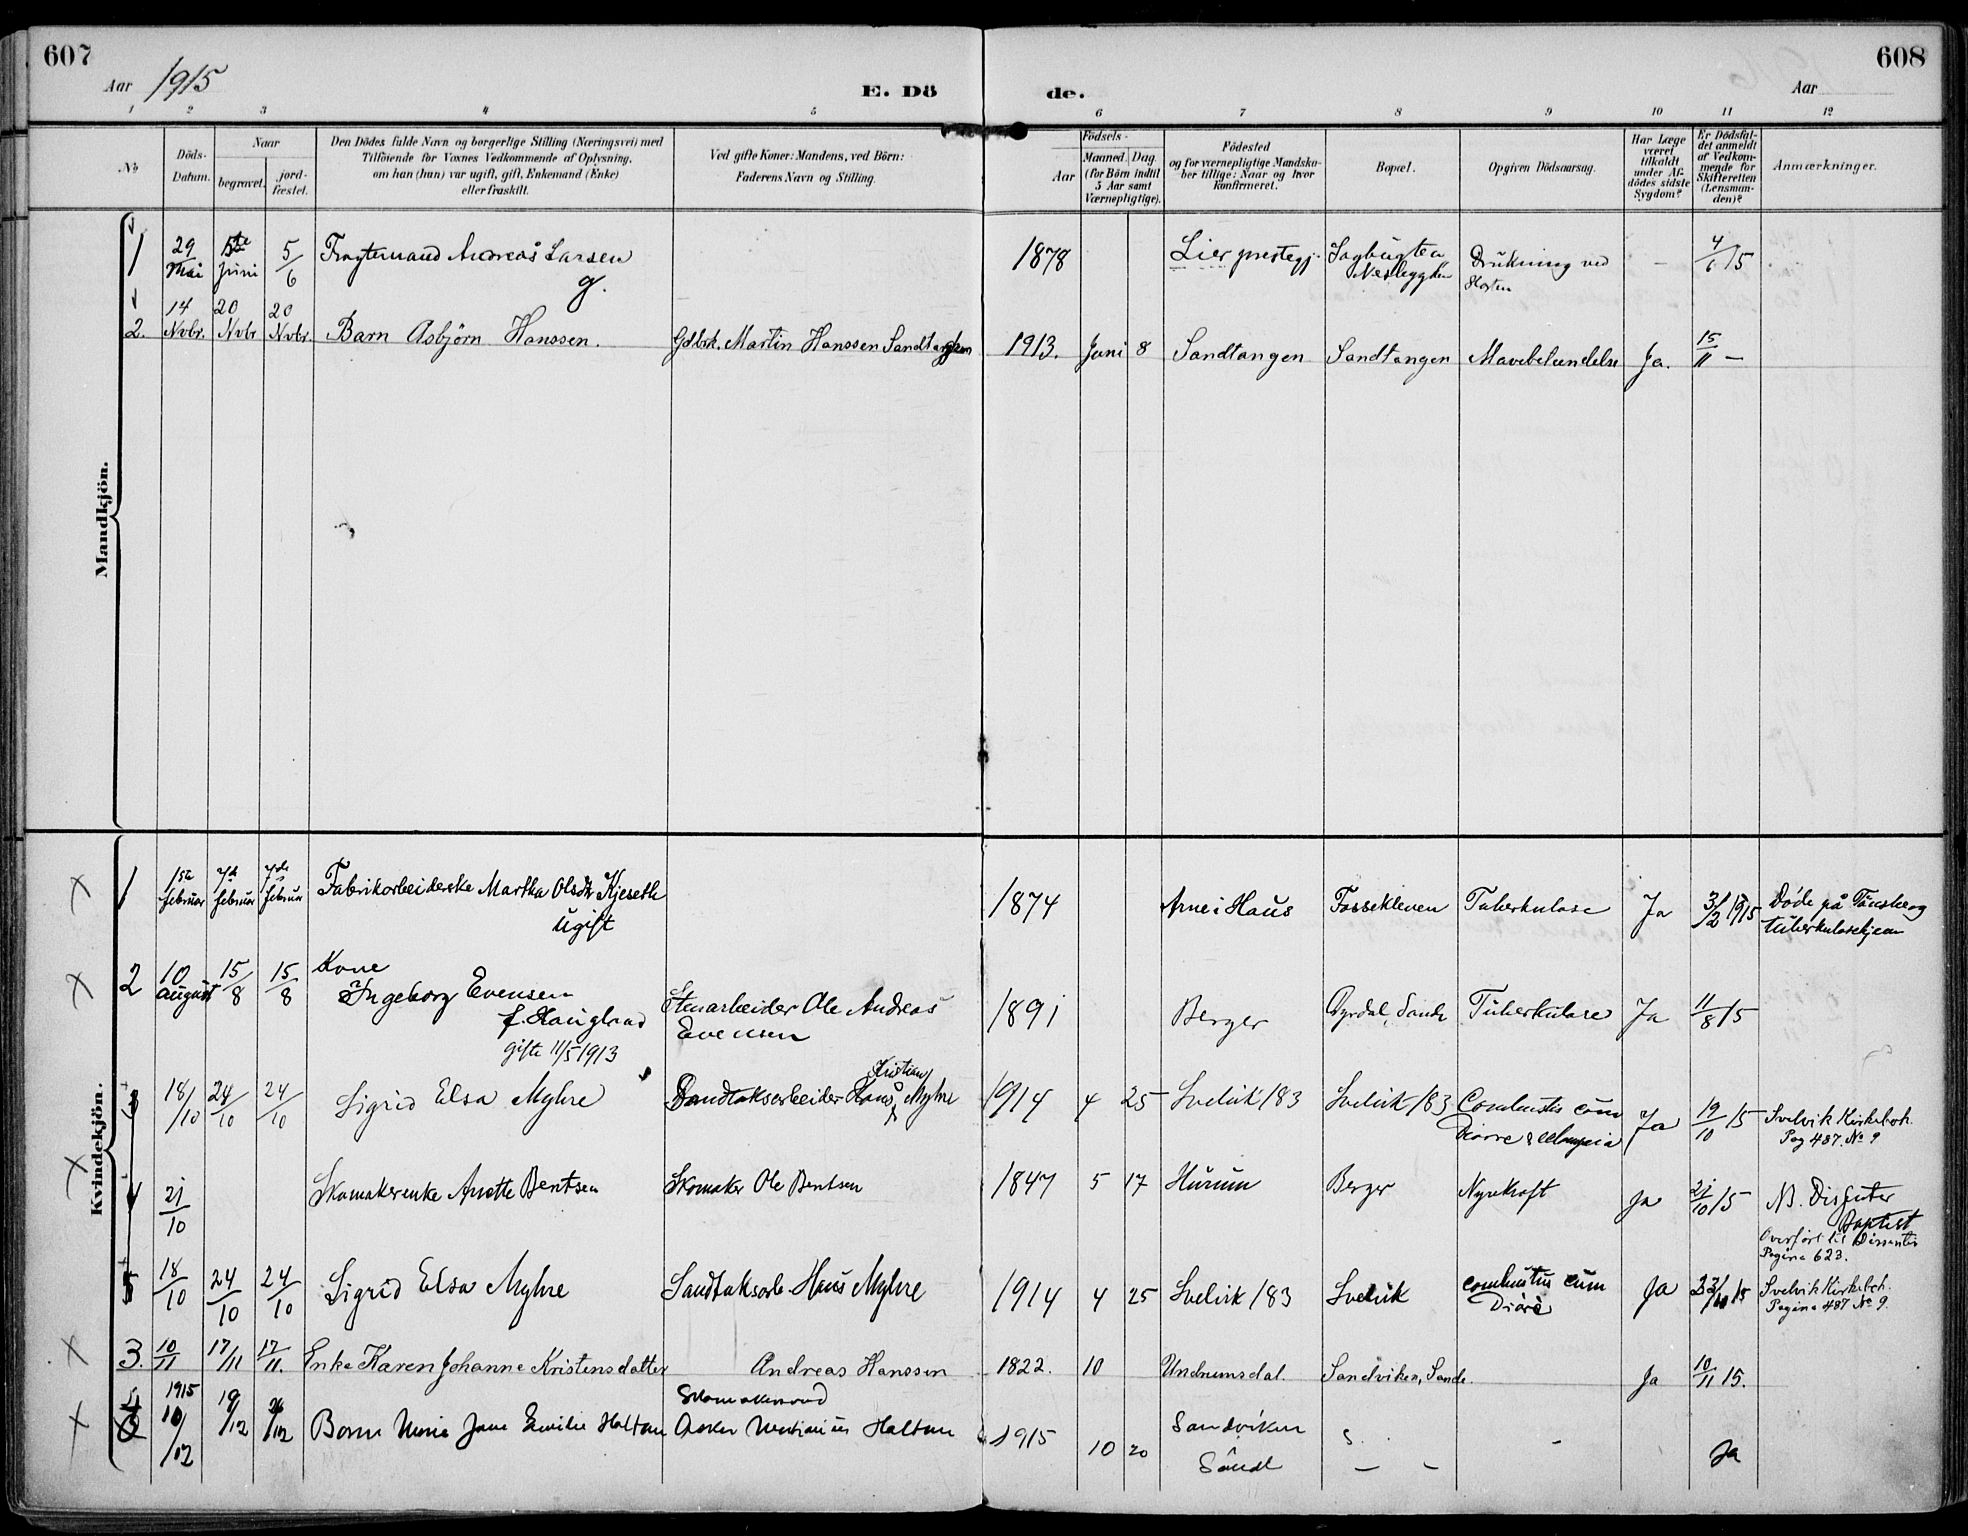 607
608
Aar 1915
E. Dö
de.
Aar
1 2 3 4 5 6 7 8 9 10 11 12
No
Döds-
Datum.
Naar
begravet.
jord-
fæstet.
Den Dødes fulde Navn og borgerlige Stilling (Næringsvei) med
Tilföiende for Voxnes Vedkommende af Oplysning,
om han (hun) var ugift, gift, Enkemand (Enke)
eller fraskilt.
Ved gifte Koner: Mandens, ved Börn:
Faderens Navn og Stilling.
Födsels-
Aar
Maaned. Dag.
(for Börn indtil
5 Aar samt
Værnepligtige).
Födested
og for værnepligtige Mandska-
ber tillige: Naar og hvor
konfirmeret.
Bopæl.
Opgiven Dödsaarsag.
Har Læge
været
tilkaldt
under Af-
dödes sidste
Sygdom?
Er Dödsfal-
det anmeldt
af Vedkom-
mende for
Skifteretten
(Lensman-
den)?
Anmærkninger.
Mandkjön.
1 29 Mai Juni 5/6 Andreas Larsen g. 1878 Lier prestegj. Drukning ved 4/6 15
2. 14 Novbr. 20 Novbr 20 Novbr. Barn Asbjørn Hanssen. Gdbrk. Martin Hanssen Sandtangen 1913. Juni 8 Sandtangen Sandtangen Ja. 15/11 —
Kvindekjön.
1 1ste februar 7de februar 7de februar Fabrikarbeiderske Martha Olsdtr Kjeseth
ugift
1874 Arne i Haus Fossekleven Tuberkulose Ja 3/2 1915 Døde på Tønsberg
tuberkulosehjem
2 10 august 15/8 15/8 Kone
Ingeborg Evensen
f. Haugland
gifte 11/5 1913
Stenarbeider Ole Andreas
Evensen
1891 Berger Dyrdal, Sande Tuberkulose Ja 11/8 15
3 18/10 24/10 24/10 Sigrid Elsa Myhre Sandtaksarbeider Hans Kristian Myhre 1914 4 25 Svelvik /83 Svelvik /83 Combustio cum
Ja 19/10 15 Svelvik Kirkebok.
Pag 487. No 9
4 21/10 Skomakerenke Anette Bentsen Skomaker Ole Bentsen 1847 5 17 Hurum Berger Nyrekræft Ja 21/10 15 NB. Dissenter
Baptist
Overført til Dissenter
Pagina 623.
5 18/10 24/10 24/10 Sigrid Elsa Myhre Sandtaksarb. Hans Myhre 1914 4 25 Svelvik /83 Svelvik combustio cum
Ja 15 Svelvik Kirkebok.
Pagina 487 No 9.
3. 10/11 17/11 17/11. Enke Karen Johanne Kristensdatter Andreas Hanssen 1822. 10 Undrumsdal Sandviken, Sande. Ja 10/11 15.
1915 10/12 19/12 Barn Jane Emilie Haltan Haltan 1915 10 20 Sandviken
Sande
S.
— —
-
Ja